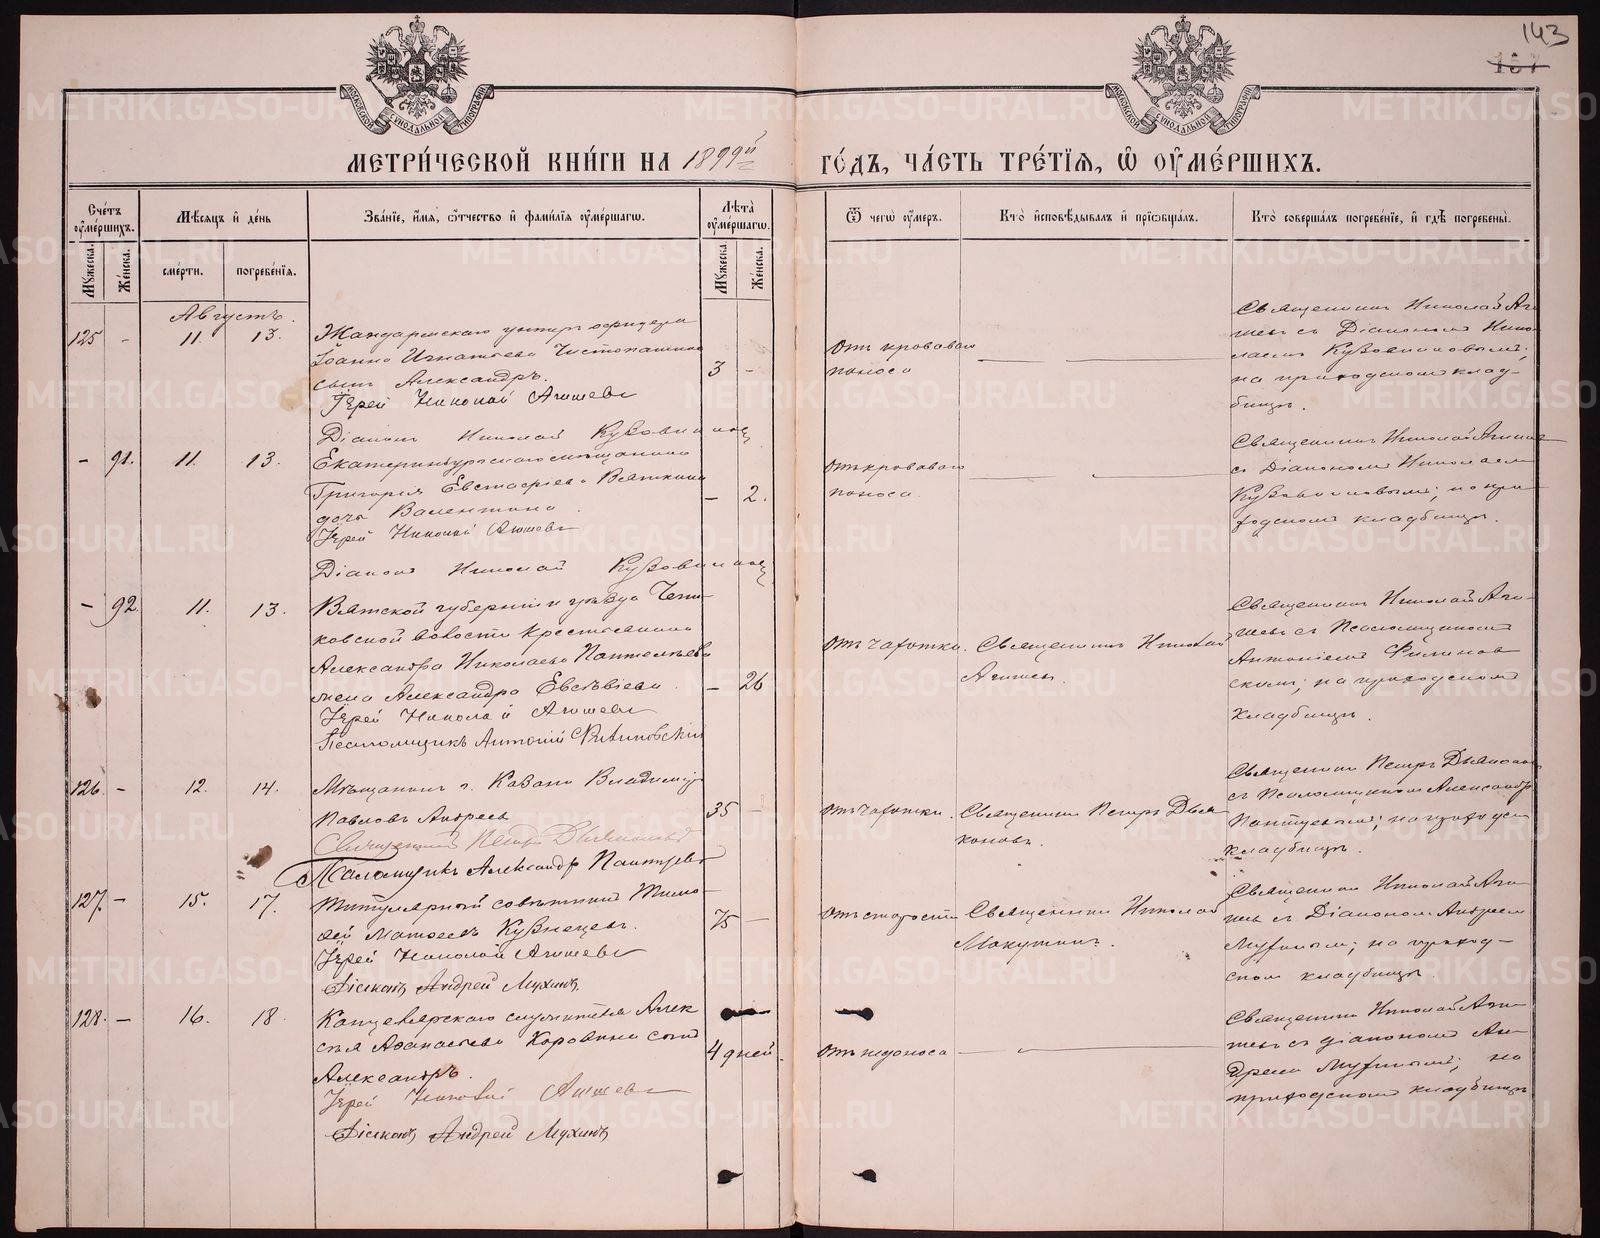 143
МОСКОВСКОЙ СѴНОДАЛЬНОЙ ТИПОГРАФІИ
МОСКОВСКОЙ СѴНОДАЛЬНОЙ ТИПОГРАФІИ
МЕТРИ́ЧЕСКОЙ КНИ́ГИ НА 1899й ГО́ДЪ, ЧА́СТЬ ТРЕ́ТІЯ, Ѡ ОУМЕ́РШИХЪ.
Сче́тъ оуме́ршихъ.
Му́жеска.
Же́нска.
Мѣ́сяцъ и де́нь
сме́рти.
погребе́нія.
Зва́ніе, и́мя, ѻ́тчество и фами́лія оуме́ршагѡ.
Лѣта̀ оуме́ршагѡ.
Му́жеска.
Же́нска.
Ѿ чегѡ̀ оу́меръ.
Кто̀ исповѣ́дывалъ и пріѡбща́лъ.
Кто̀ соверша́лъ погребе́ніе, и гдѣ̀ погребены̀.
Августъ.
125 - 11. 13.
Жандармскаго унтеръ офицера
Іоанна Игнатьева
сынъ Александръ.
Іерей Николай Агишевъ
Діаконъ Николай Кузовников
3 -
Отъ кроваваго
поноса
Священникъ Николай Аги-
шевъ съ Діакономъ Нико-
лаемъ Кузовниковымъ;
на приходскомъ клад-
бищѣ.
- 91. 11. 13.
Екатеринбургскаго мѣщанина
Григорія Евстафіева Вяткина
дочь Валентина.
Іерей Николай Агишевъ
Діаконъ Николай Кузовников
- 2.
Отъ кроваваго
поноса.
Священникъ Николай Агишевъ
съ Діакономъ Николаемъ
Кузовниковымъ; на при-
ходскомъ кладбищѣ.
- 92. 11. 13.
Вятской губерніи и уѣзда
ковской волости крестьянина
Александра Николаева Пантелѣева
жена Александра Евсѣвіева.
Іерей Николай Агишевъ
Псаломщикъ Антоній Филиновскій
- 26
Отъ чахотки.
Священникъ Николай
Агишевъ.
Священникъ Николай Аги-
шевъ съ Псаломщикомъ
Антоніемъ Филинов
скимъ; на приходскомъ
кладбищѣ.
126. - 12. 14.
Мѣщанинъ г. Казани Владиміръ
Павловъ Андреевъ
Священникъ Петръ Дьяконовъ
Псаломщикъ Александръ Пантуевъ
35 -
Отъ чахотки.
Священникъ Петръ Дья
коновъ.
Священникъ Петръ Дьяконовъ
съ Псаломщикомъ Александр.
Пантуевымъ; на приходск.
кладбищѣ.
127. - 15. 17.
Титулярный совѣтникъ Тимо-
ѳей Матѳеевъ Кузнецовъ.
Іерей Николай Агишевъ
Діаконъ Андрей Мухинъ.
75 -
Отъ старости
Священникъ Николай
Макушинъ.
Священникъ Николай Аги-
шевъ съ Діакономъ Андреемъ
Мухинымъ; на приход-
скомъ кладбищѣ.
128. - 16. 18.
Канцелярскаго служителя Алек
сѣя Аѳанасьева Коровина сынъ
Александръ.
Іерей Николай Агишевъ
Діаконъ Андрей Мухинъ
4 дней.
Отъ недоноса
Священникъ Николай Аги-
шевъ съ діакономъ Ан-
дреемъ Мухинымъ; на
приходскомъ кладбищѣ
METRIKI.GASO-URAL.RU